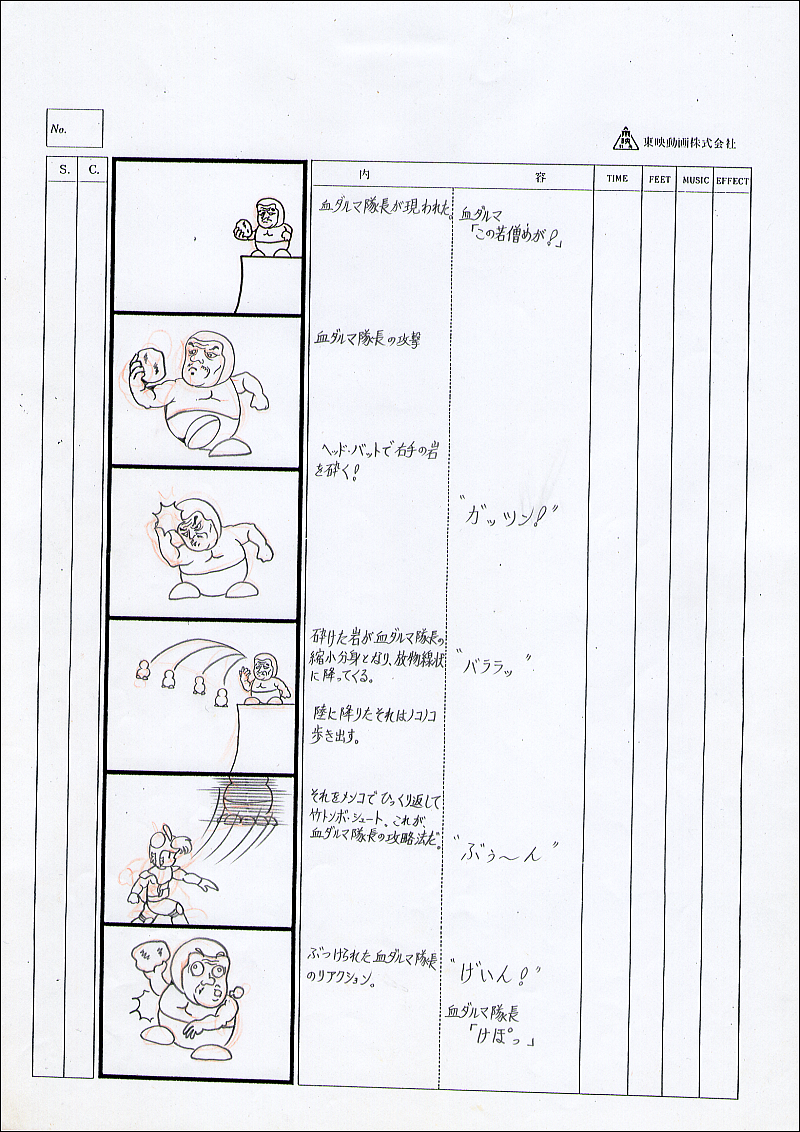 No.
東映動画株式会社
S.
C.
内 容
TIME
FEET
MUSIC
EFFECT
血ダルマ隊長が現われた。
血ダルマ
「この若僧めが!」
血ダルマ隊長の攻撃
ヘッド・バットで右手の岩
を砕く!
"ガッツン!"
砕けた岩が血ダルマ隊長の
縮小分身となり、放物線状
に降ってくる。
"バララッ"
陸に降りたそれはノコノコ
歩き出す。
それをメンコでひっくり返して
竹トンボ・シュート、これが、
血ダルマ隊長の攻略法だ。
"ぶぅ〜ん"
ぶつけられた血ダルマ隊長
のリアクション。
"げいん!"
血ダルマ隊長
「けぽっ」